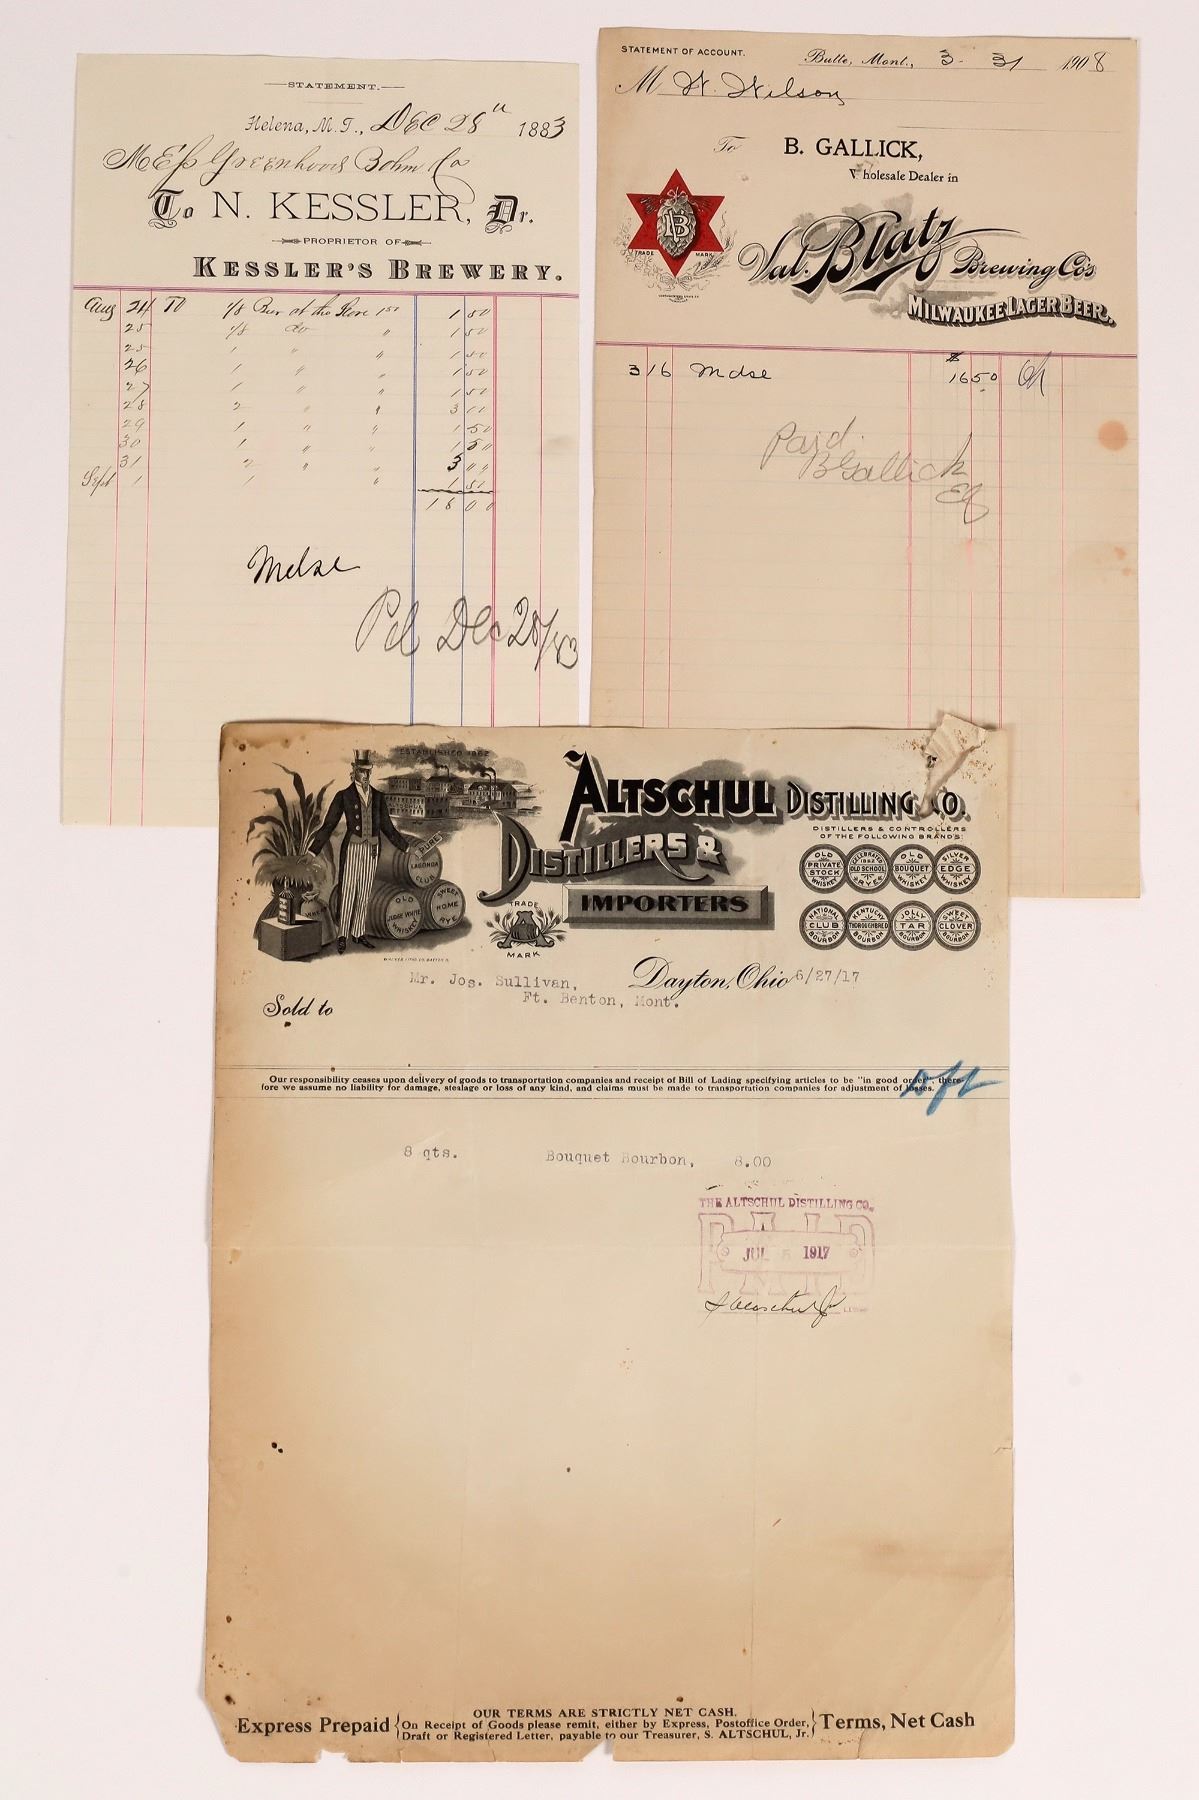 STATEMENT.
Helena, M. T., Dec 28th 1883
Mess Greenhood Bohm Co
To N. KESSLER, Dr.
PROPRIETOR OF
KESSLER'S BREWERY.
Aug 24 To 1/8 Beer at the Store 1 50 1 50
25 1/8 do " 1 50
25 1 " " 1 50
26 1 " " 1 50
27 1 " " 1 50
28 2 " " 3 00
29 1 " " 1 50
30 1 " " 1 50
31 2 " " 3 00
Sept 1 1 " 1 50
18 00
Mdse
Pd Dec 28/83
STATEMENT OF ACCOUNT.
Butte, Mont., 3-31 1908
M W. Wilson
To B. GALLICK,
Wholesale Dealer in
B
TRADE MARK
Val. Blatz Brewing Co's
MILWAUKEE LAGER BEER.
3 16 Mdse $ 16 50 OK
Paid.
B Gallick
ESTABLISHED 1862
ALTSCHUL DISTILLING CO.
DISTILLERS & CONTROLLERS
OF THE FOLLOWING BRANDS:
DISTILLERS &
IMPORTERS
PURE LAGONDA CLUB
OLD JUDGE WHITE WHISKEY
SWEET HOME RYE
TRADE
A
MARK
OLD PRIVATE STOCK WHISKEY
CELEBRATED 1862 OLD SCHOOL RYE
OLD BOUQUET WHISKEY
SILVER EDGE WHISKEY
NATIONAL CLUB BOURBON
KENTUCKY THOROUGHBRED BOURBON
JOLLY TAR BOURBON
SWEET CLOVER BOURBON
Mr. Jos. Sullivan, Dayton, Ohio 6/27/17
Ft. Benton, Mont.
Sold to
Our responsibility ceases upon delivery of goods to transportation companies and receipt of Bill of Lading specifying articles to be "in good order", there-
fore we assume no liability for damage, stealage or loss of any kind, and claims must be made to transportation companies for adjustment of losses.
8 qts. Bouquet Bourbon, 8.00
THE ALTSCHUL DISTILLING CO.
PAID
JUL 5 1917
S Altschul Jr
OUR TERMS ARE STRICTLY NET CASH.
Express Prepaid { On Receipt of Goods please remit, either by Express, Postoffice Order, } Terms, Net Cash
Draft or Registered Letter, payable to our Treasurer, S. ALTSCHUL, Jr.